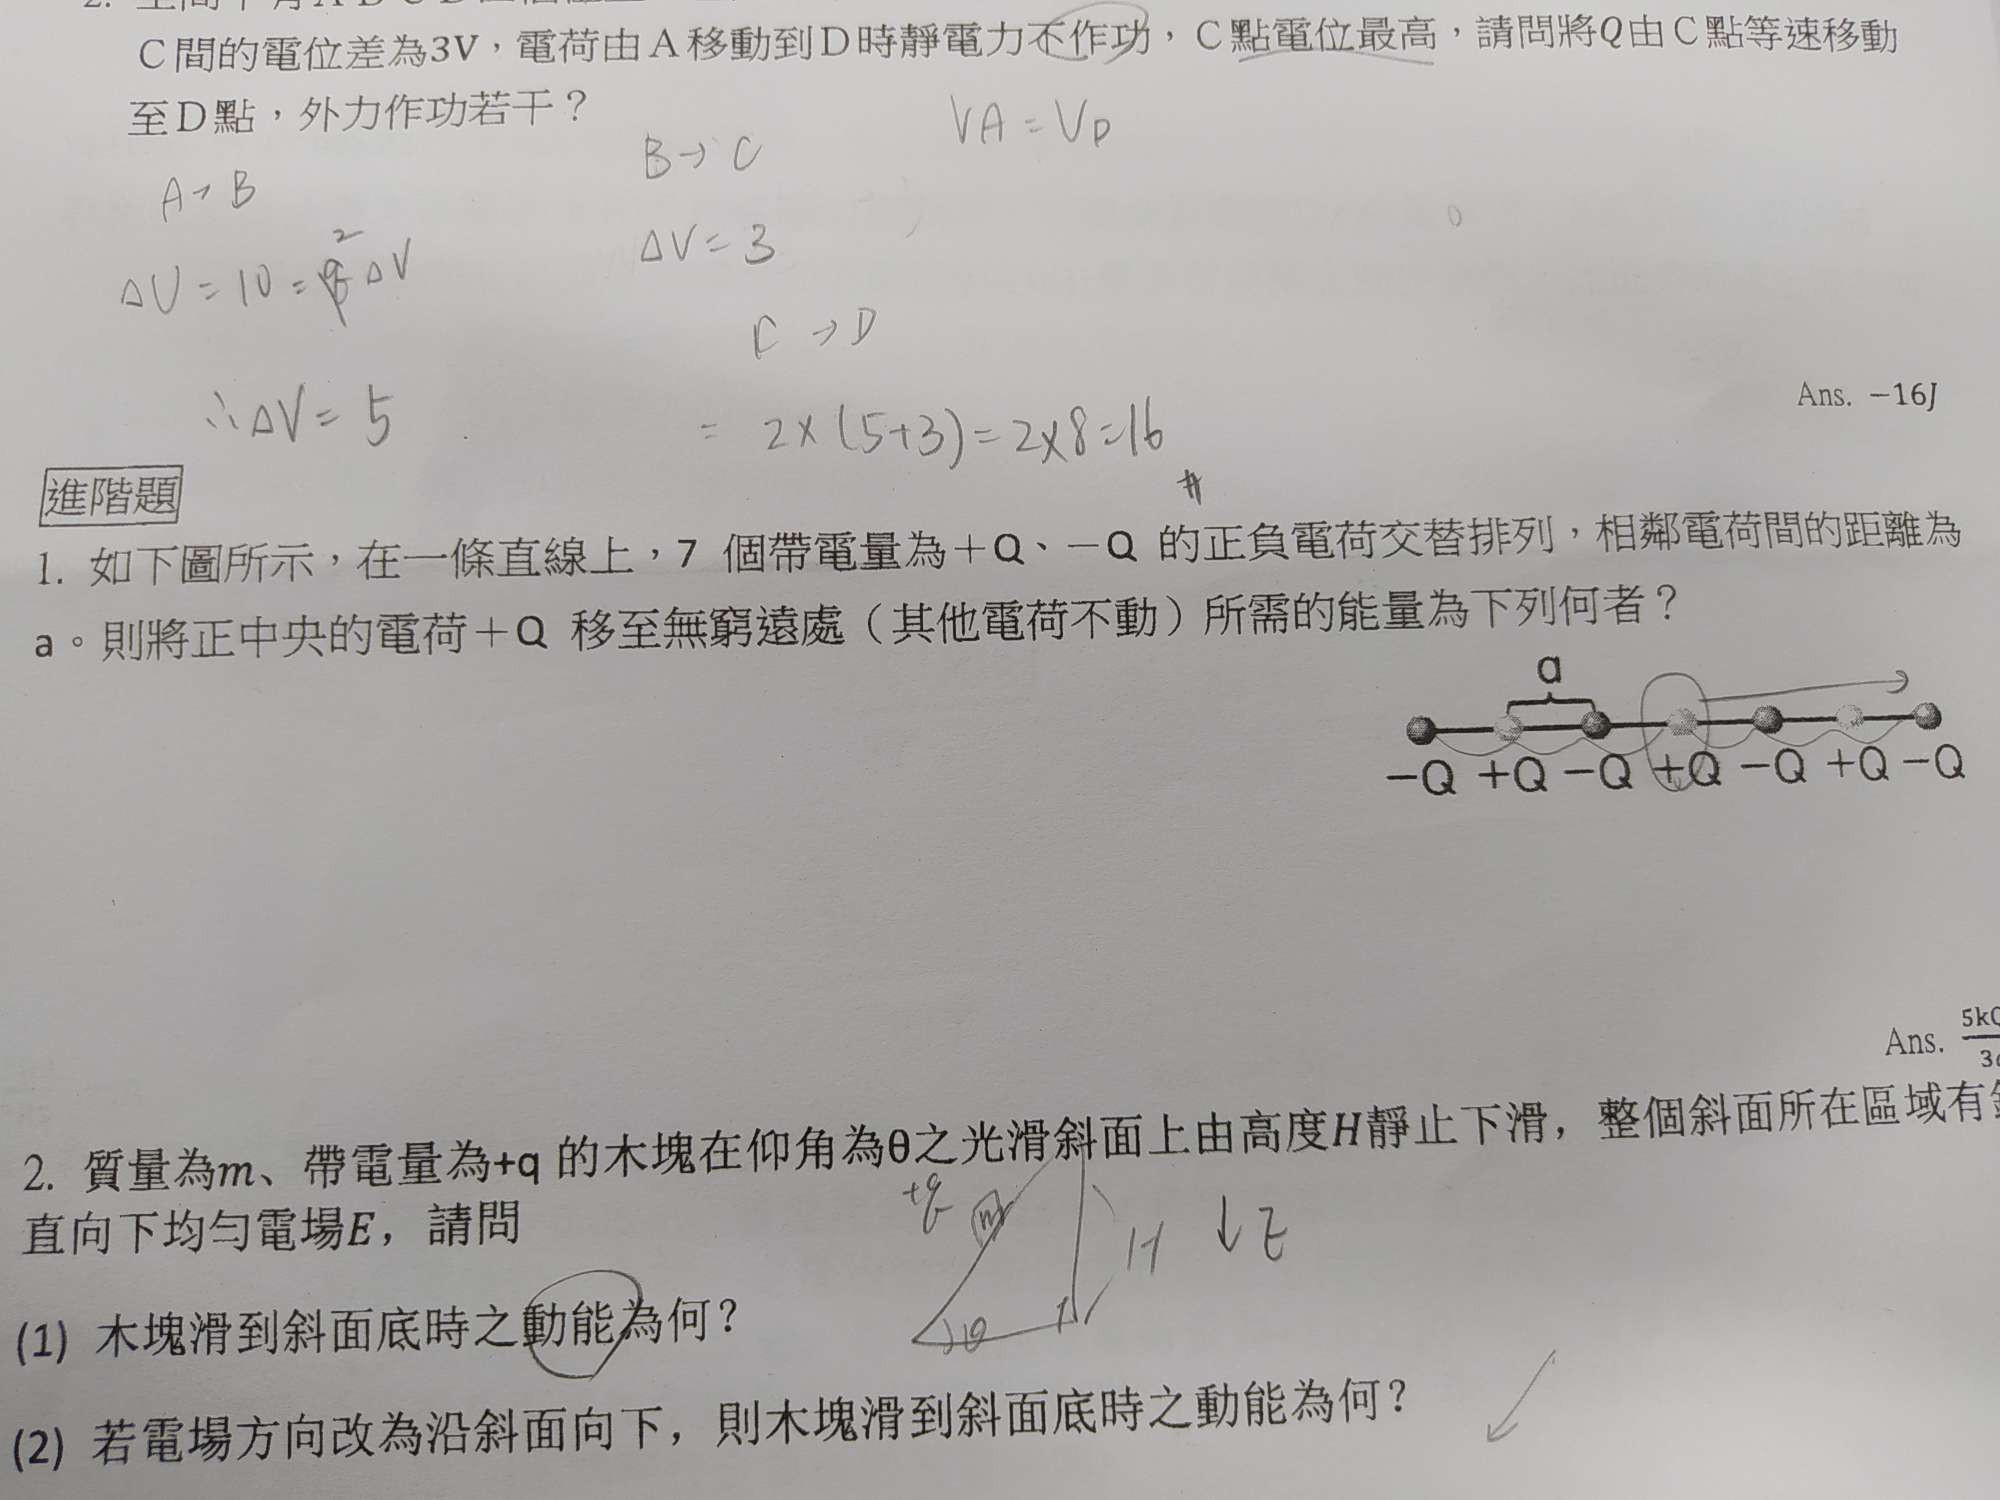 C間的電位差為3V，電荷由A移動到D時靜電力不作功，C點電位最高，請問將Q由C點等速移動
至D點，外力作功若干？
VA = VD
A→B
B→C
ΔU = 10 = 2 ΔV
ΔV = 3
C→D
∴ΔV = 5
= 2×(5+3) = 2×8 = 16 #
Ans. −16J
進階題
1. 如下圖所示，在一條直線上，7 個帶電量為＋Q、－Q 的正負電荷交替排列，相鄰電荷間的距離為
a。則將正中央的電荷＋Q 移至無窮遠處（其他電荷不動）所需的能量為下列何者？
a
−Q +Q −Q +Q −Q +Q −Q
Ans. 5k
3
2. 質量為m、帶電量為+q 的木塊在仰角為θ之光滑斜面上由高度H靜止下滑，整個斜面所在區域有
直向下均勻電場E，請問
+q m H ↓E
θ
(1) 木塊滑到斜面底時之動能為何？
(2) 若電場方向改為沿斜面向下，則木塊滑到斜面底時之動能為何？